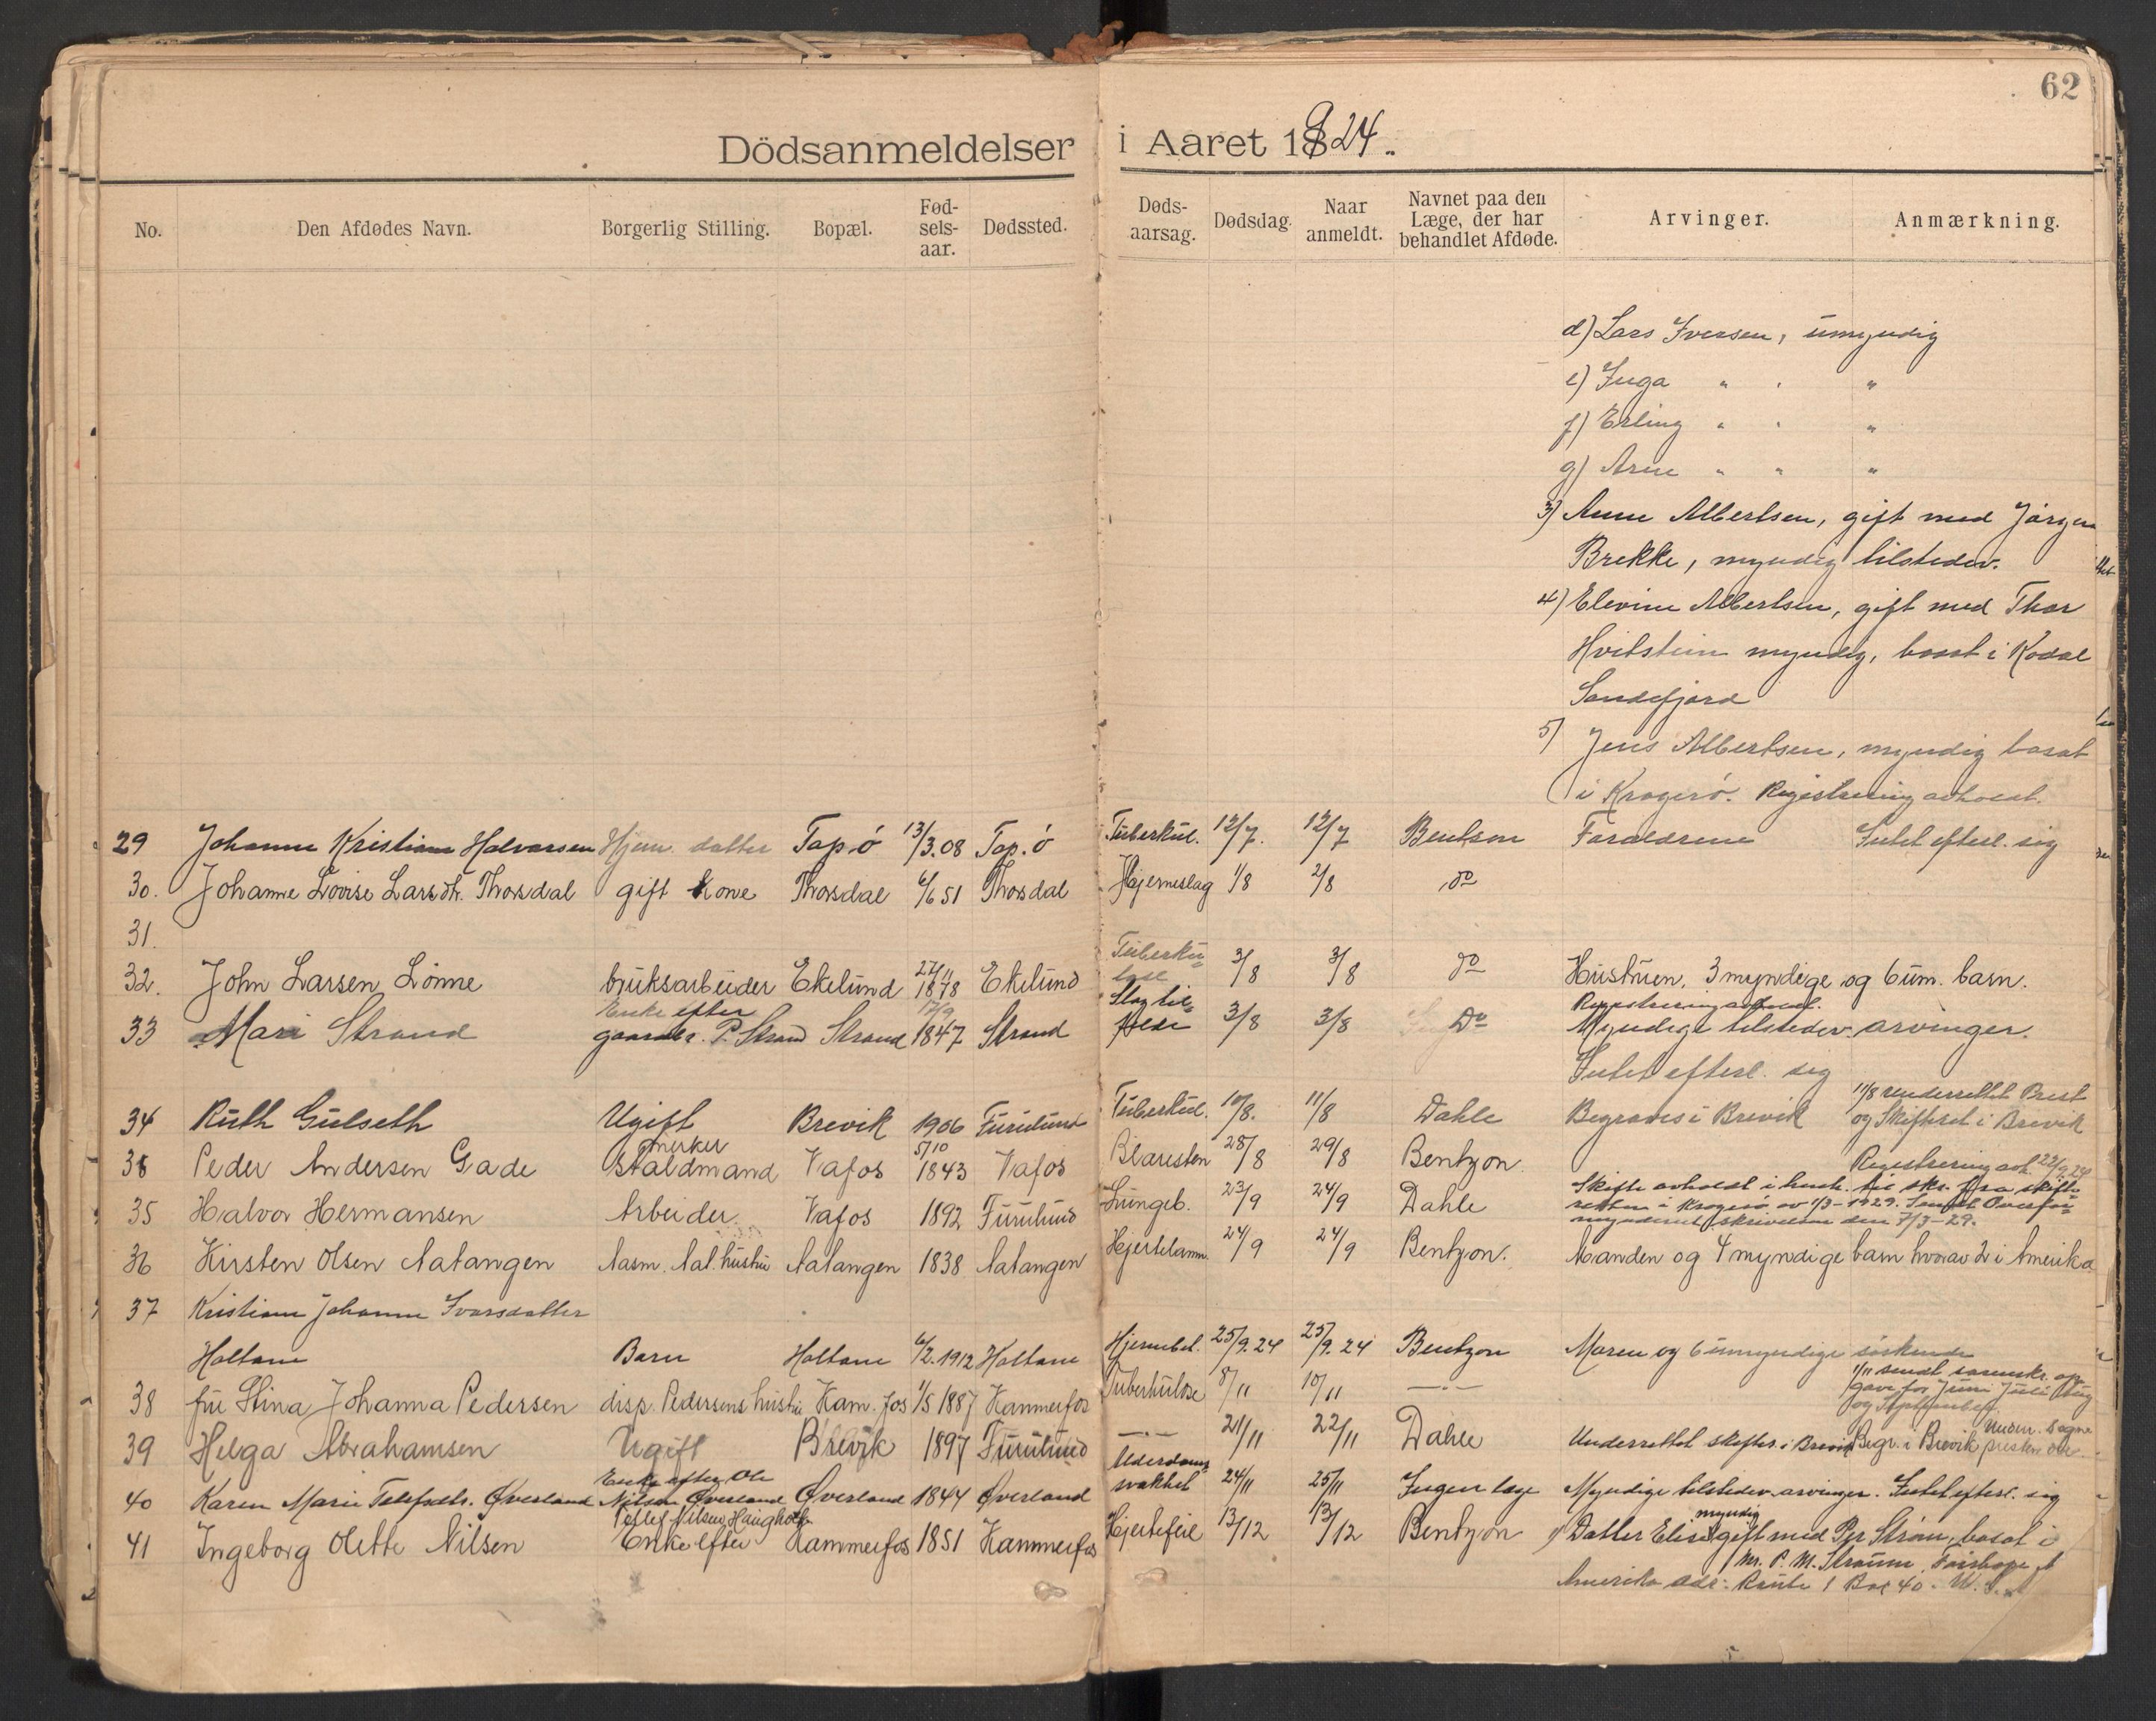 62
Dödsanmeldelser i Aaret 1924.
No. Den Afdødes Navn. Borgerlig Stilling. Bopæl. Fødselsaar. Dødssted. Dødsaarsag. Dødsdag. Naar anmeldt. Navnet paa den Læge, der har behandlet Afdøde. Arvinger. Anmærkning.
d) Lars Iversen, umyndig
e) Inga " " "
f) Erling " " "
g) Arne " " "
3) Anne Albertsen, gift med Jörgen
Brekke, myndig tilstedev.
4) Elevine Albertsen, gift med Thor
Hvitstein myndig, bosat i Kodal
Sandefjord
5) Jens Albertsen, myndig bosat
i Kragerö. Registrering avholdt.
29 Johanne Kristiane Halvorsen Hjem. datter Tap.ö 13/3.08 Tap.ö Tuberkul. 12/7. 12/7 Bentson Foraldrene Intet efterl. sig
30. Johanne Lovise Larsdtr. Thorsdal gift kone Thorsdal 6/6 51 Thorsdal Hjerneslag 1/8 2/8 do
31.
32. John Larsen Lönne bruksarbeider Ekelund 27/11 1878 Ekelund Tuberkulose 3/8 3/8 do Hustruen, 3 myndige og 6 um. barn.
Registrering avholdt.
33 Mari Strand Enke efter gaardbr. P. Strand Strand 17/9 1847 Strand 3/8 3/8 Do Myndige tilstedev. arvinger.
Intet efterl. sig
34 Ruth Gulseth Ugift Brevik 1906 Furulund Tuberkul. 10/8. 11/8 Dahle Begraves i Brevik 11/8 underrettet Prest
og Skifteret i Brevik
36 Peder Andersen Gade merker staldmand Vafos 5/10 1843 Vafos Blaresten 28/8 29/8 Bentzon Registrering avh. 22/9 24
35 Halvor Hermansen Arbeider Vafos 1892 Furulund Lungeb. 23/9 24/9 Dahle Skifte avholdt i skifteretten i Kragerö av 1/3-1929. skrivelse den 7/3-29.
36 Kirsten Olsen Aatangen Aasm. Aal. hustru Aatangen 1838 Aatangen Hjertelamm. 24/9 24/9 Bentzon. Manden og 4 myndige barn hvorav 2 i Amerika
37 Kristiane Johanne Ivarsdatter
Holtane Barn Holtane 6/2.1912 Holtane Hjernebet. 25/9.24 25/9.24 Bentzon Moren og 6 umyndige söskende
1/11 sendt opgave for Juni Juli Aug
og September.
38 fru Stina Johanna Pedersen disp. Pedersens hustru Kam.fos 1/5 1887 Kammerfos Tuberkulose 8/11 10/11 —"—
39 Helga Abrahamsen Ugift Brevik 1897 Furulund —"— 21/11 22/11 Dahle Underrettet skifter. i Brevik Begr. i Brevik Underr. Sogne presten der
40 Karen Marie Tellefsdtr. Överland Enke efter Ole Nilsen Överland Överland 1844 Överland Alderdomssvakhet 24/11 25/11 Ingen læge Myndige tilstedev. arvinger. Intet efterl. sig
41 Ingeborg Olette Nilsen Enke efter Nilsen Haugholt Kammerfos 1851 Kammerfos Hjertefeil 13/12 13/12 Bentzon 1) Datter Elise myndig gift med Per Ström, bosat i
Mr. P. M. Straum, Fairhope
Amerika adr: Route 1 Box 40.